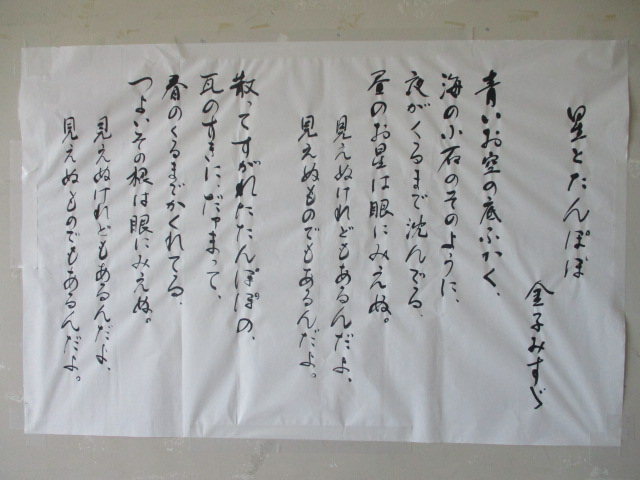 星とたんぽぽ
金子みすゞ
青いお空の底ふかく、
海の小石のそのように、
夜がくるまで沈んでる、
昼のお星は眼にみえぬ。
見えぬけれどもあるんだよ、
見えぬものでもあるんだよ。
散ってすがれたたんぽぽの、
瓦のすきに、だァまって、
春のくるまでかくれてる、
つよいその根は眼にみえぬ。
見えぬけれどもあるんだよ、
見えぬものでもあるんだよ。